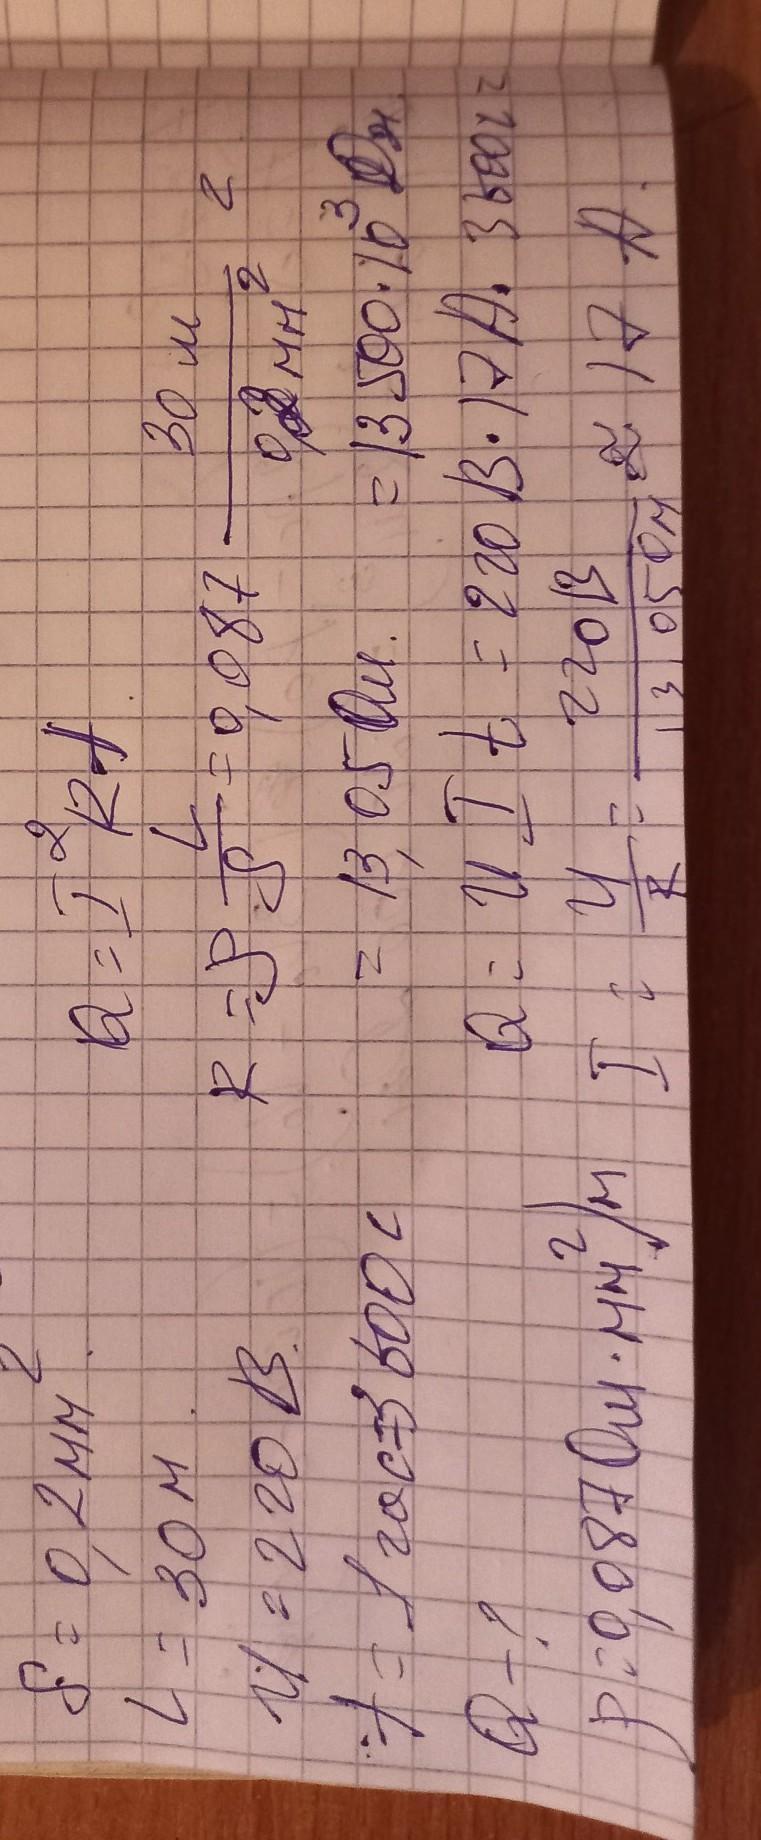 S = 0,2 мм²
L = 30 м.
U = 220 В.
t = 1 час = 3600 с
Q - ?
ρ = 0,087 Ом·мм²/м
Q = I²Rt
R = ρ L/S = 0,087 30 м/0,2 мм² =
= 13,05 Ом. = 13500·10³ Дж.
Q = UIt = 220 В·17 А·3600 с =
I = U/R = 220 В/13,05 Ом ≈ 17 А.